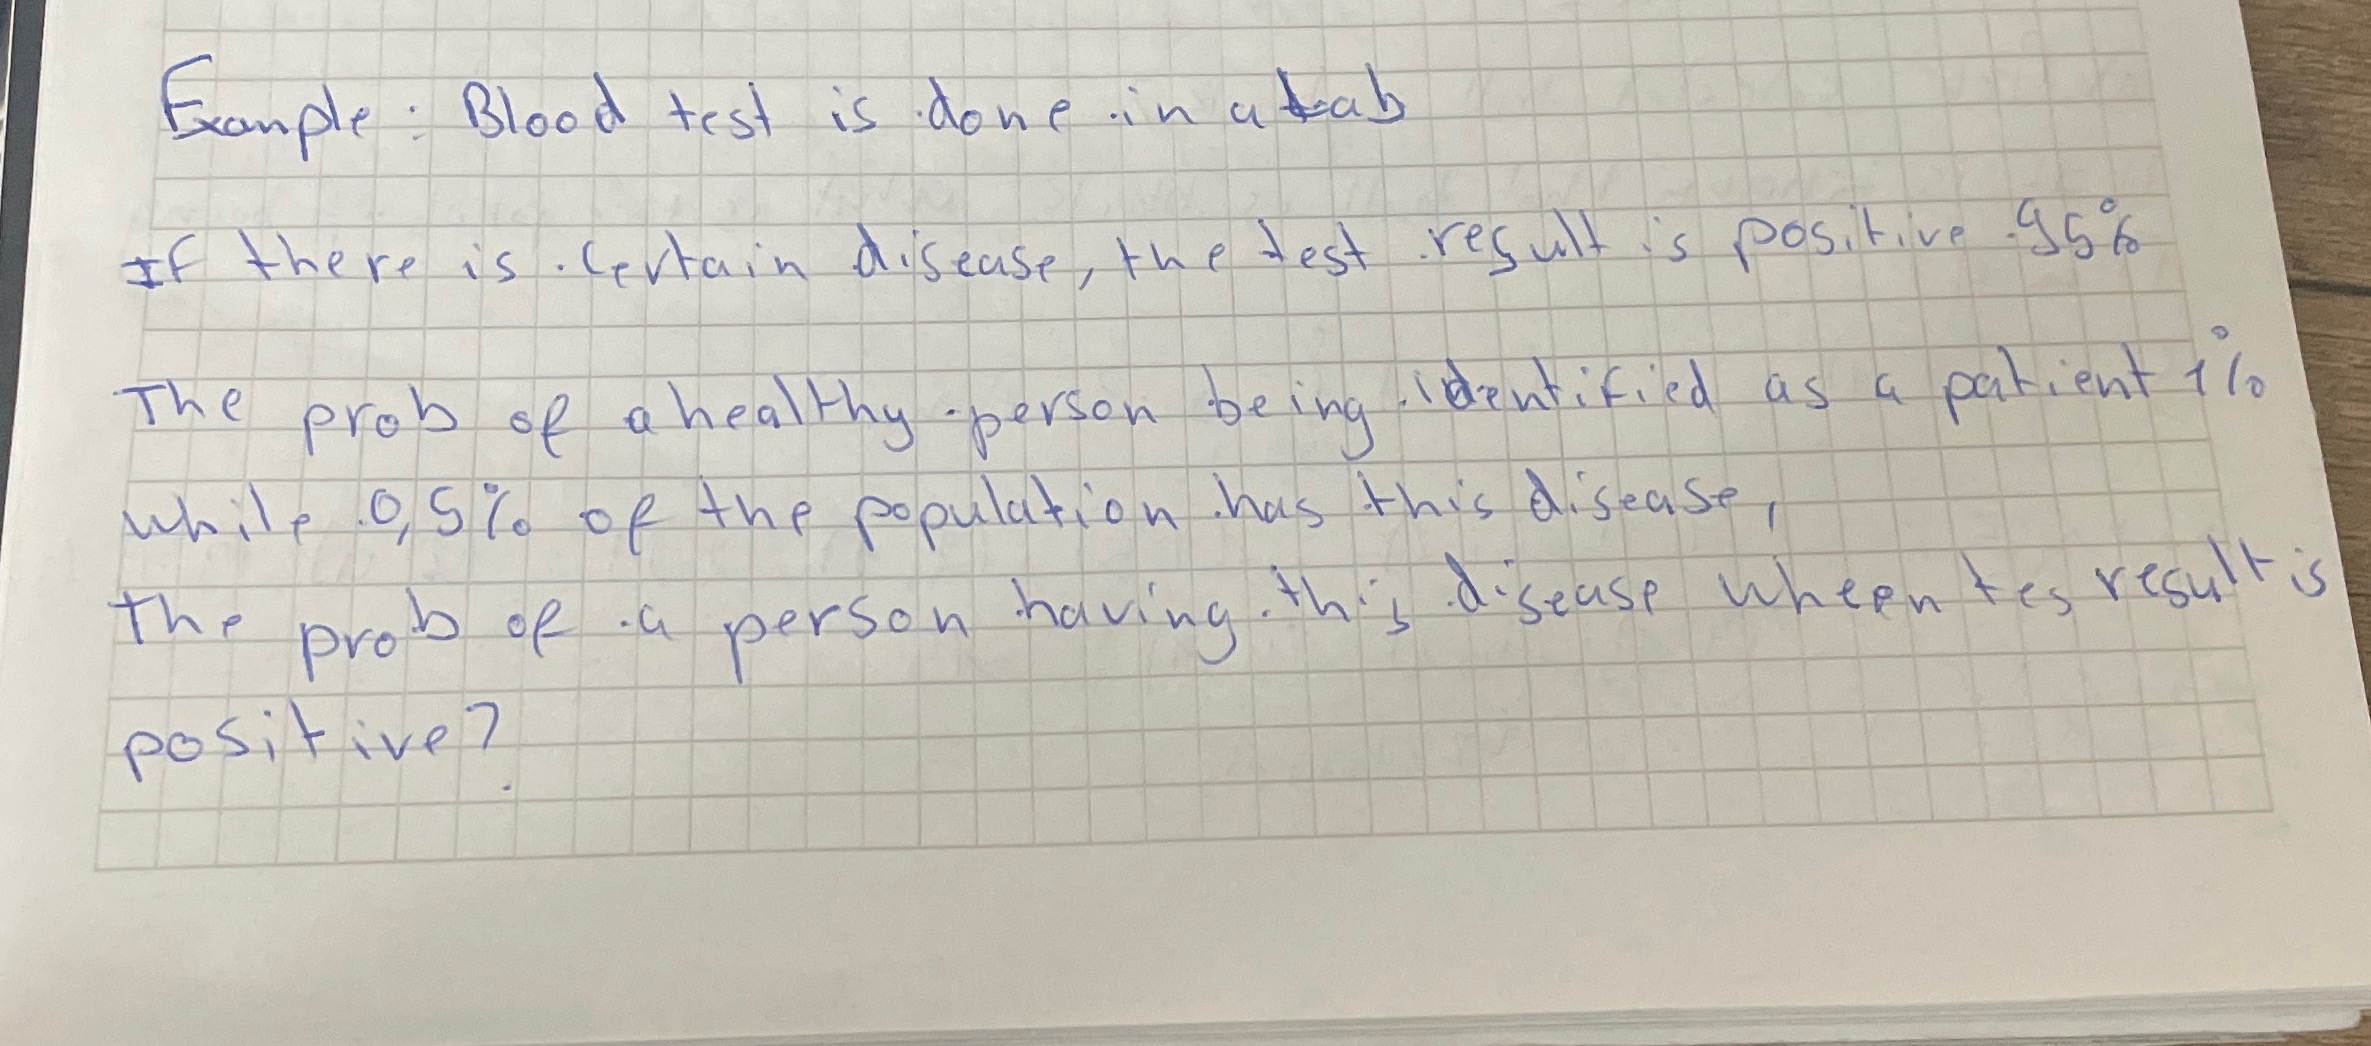 Example: Blood test is done in a Lab
If there is certain disease, the test result is positive 95%
The prob of a healthy person being identified as a patient 1%
while 0,5% of the population has this disease,
the prob of a person having this disease wheen tes result is
positive?